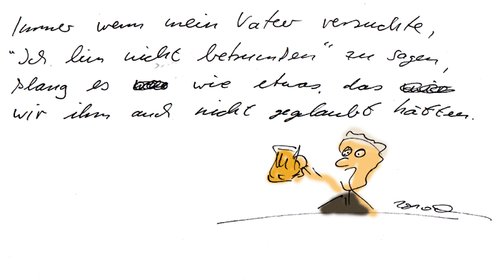 Immer wenn mein Vater versuchte,
"Ich bin nicht betrunken" zu sagen,
klang es wie etwas, das
wir ihm auch nicht geglaubt hätten.